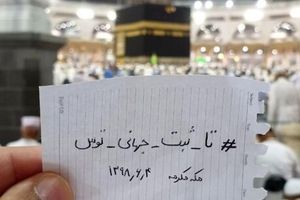 #تا_ثبت_جهانی_توس
مکه مکرمه ۱۳۹۸٫۶٫۴